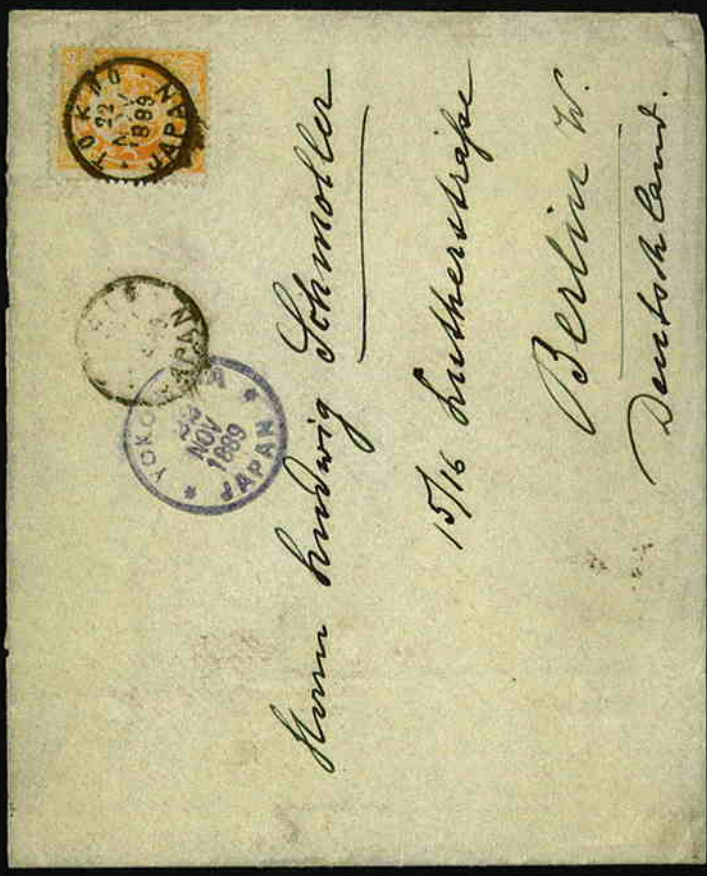 TOKIO
22
NOV
1889
JAPAN
JAPAN
NOV
1889
JAPAN
Herrn Ludwig Schmoller
15/16 Lutherstraße
Berlin W.
Deutschland.